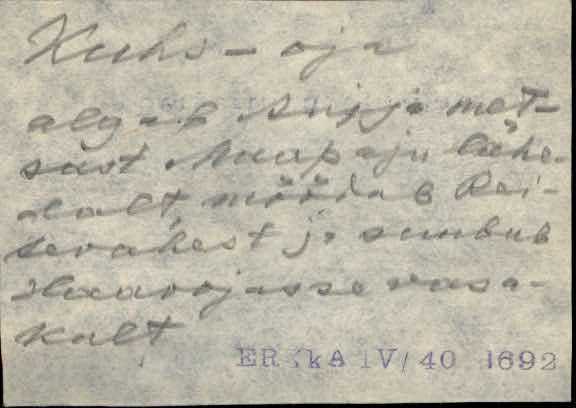 Kuhs-oja
algab Aripja met-
sast Maapaju lähe-
dalt, möödub Rei-
sevahest ja suubub
Haavojasse vasa-
kult
ER.kA IV/40 1692